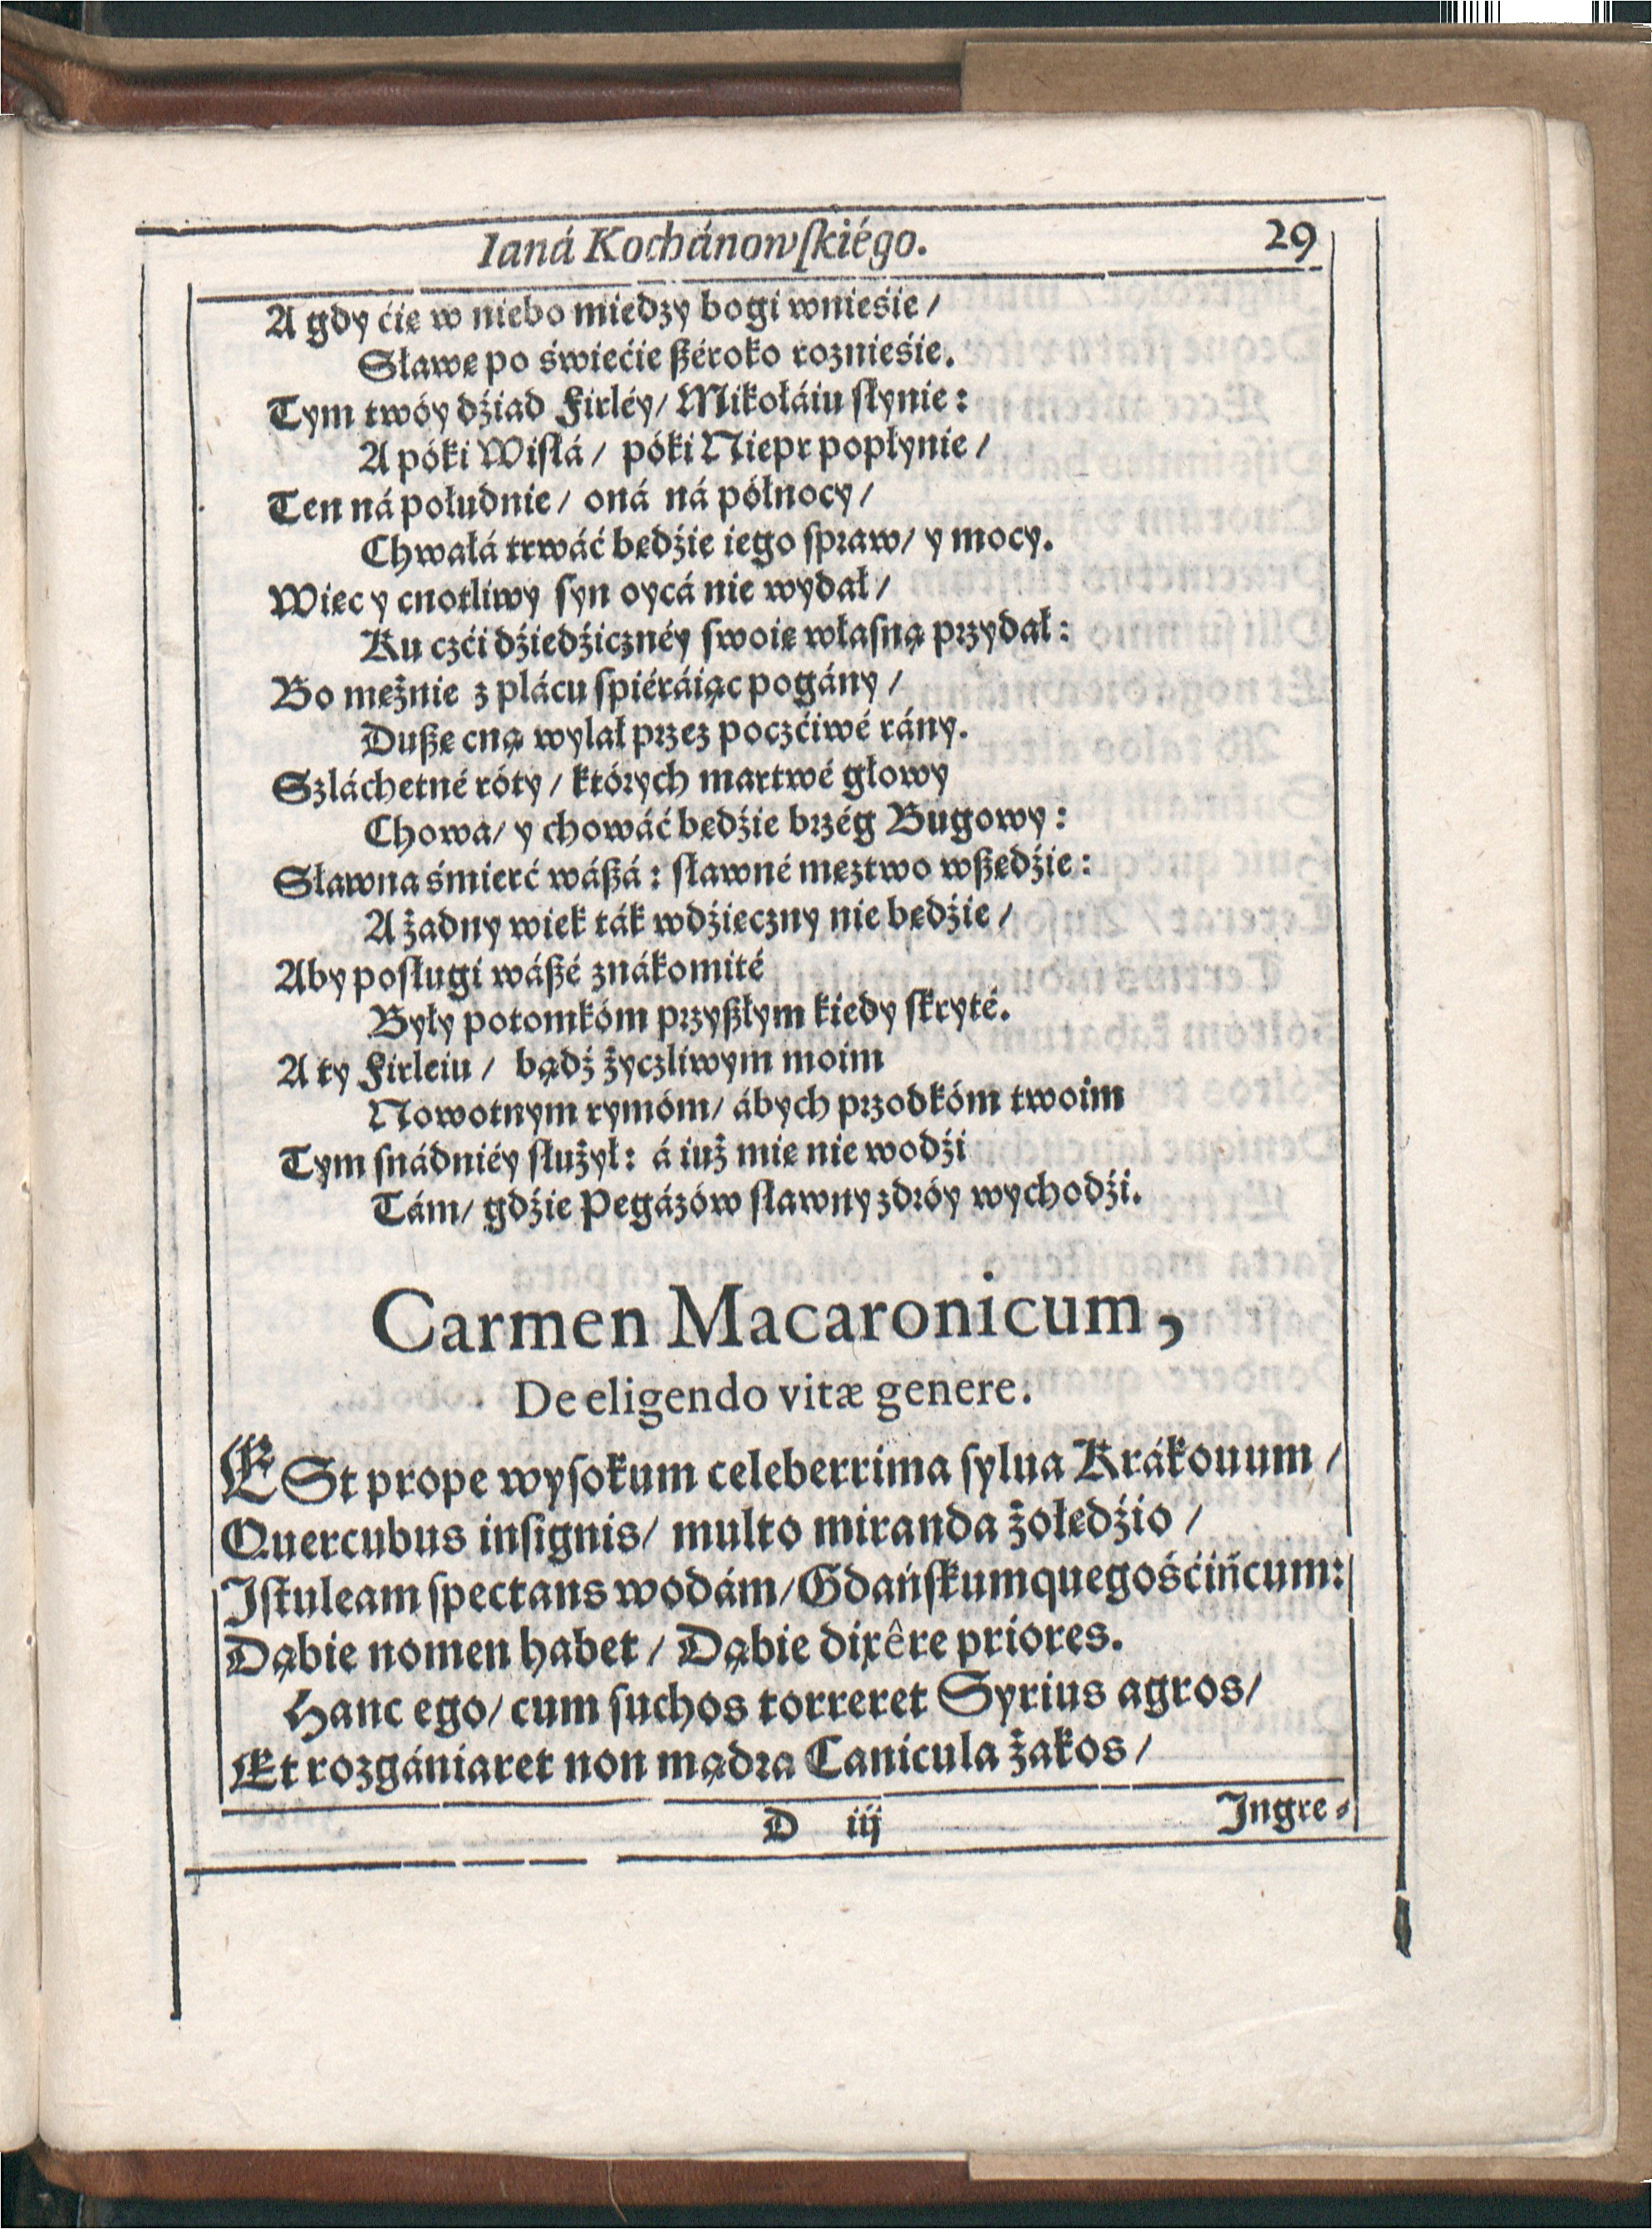 Ianá Kochánowſkiégo. 29
A gdy ćię w niebo miedzy bogi wnieśie /
Sławę po świećie ßéroko roznieśie.
Tym twóy dźiad Firléy / Mikołáiu słynie :
A póki Wisłá / póki Niepr popłynie /
Ten ná południe / oná ná północy /
Chwałá trwáć będźie iego ſpraw / y mocy.
Więc y cnotliwy ſyn oycá nie wydał /
Ku czći dźiedźicznéy ſwoię własną przydał :
Bo mężnie z plácu ſpiéráiąc pogány /
Dußę cną wylał przez poczćiwé rány.
Szláchetné róty / których martwé głowy
Chowa / y chowáć będźie brzég Bugowy :
Sławna śmierć wáßá : sławné męztwo wßędźie :
A żadny wiek ták wdźięczny nie będźie /
Aby posługi wáßé znákomité
Były potomkóm przyßłym kiedy ſkryté.
A ty Firleiu / bądź życzliwym moim
Nowotnym rymóm / ábych przodkóm twoim
Tym ſnádniéy służył : á iuż mię nie wodźi
Tám / gdźie Pegázów sławny zdróy wychodźi.
Carmen Macaronicum,
De eligendo vitæ genere.
ESt prope wyſokum celeberrima ſylua Krákouum /
Quercubus inſignis / multo miranda żołędźio /
Iſtuleam ſpectans wodám / Gdańſkumque gośćińcum :
Dąbie nomen habet / Dąbie dixêre priores.
Hanc ego / cum ſuchos torreret Syrius agros /
Et rozgániaret non mądra Canicula żakos /
D iij Ingre-